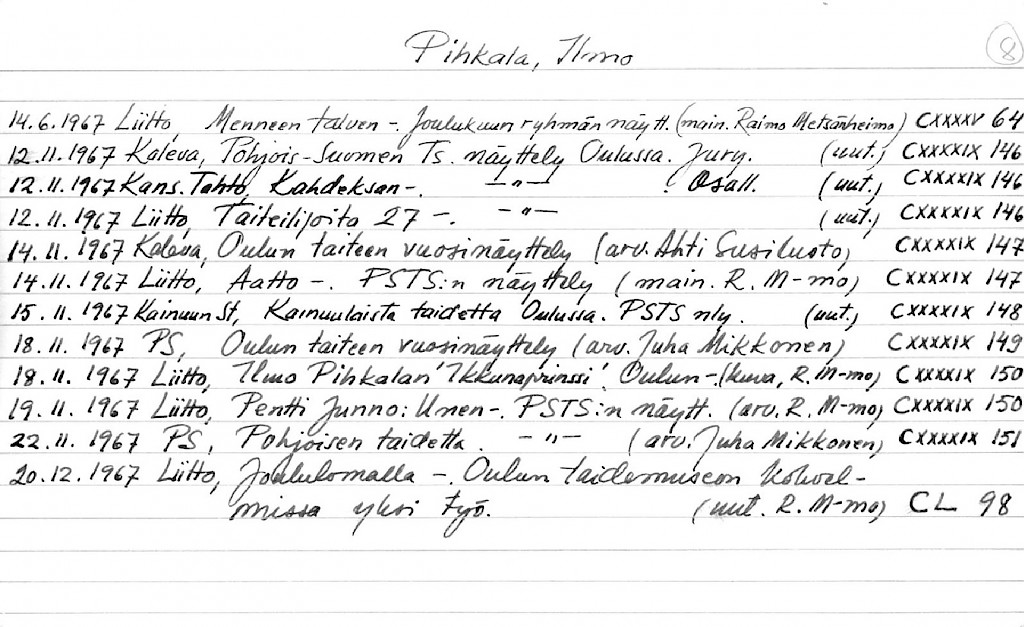 Pihkala, Ilmo
8
14.6.1967 Liitto, Menneen talven -. Joulukuun ryhmän näytt. (main. Raimo Metsänheimo) CXXXXV 64
12.11.1967 Kaleva, Pohjois-Suomen Ts. näyttely Oulussa. Jury. (uut.) CXXXXIX 146
12.11.1967 Kans. Tahto, Kahdeksan -. —"— . Osall. (uut.) CXXXXIX 146
12.11.1967 Liitto, Taiteilijoita 27 -. -"- (uut.) CXXXXIX 146
14.11.1967 Kaleva, Oulun taiteen vuosinäyttely (arv. Ahti Susiluoto) CXXXXIX 147
14.11.1967 Liitto, Aatto -. PSTS:n näyttely (main. R. M-mo) CXXXXIX 147
15.11.1967 Kainuun St, Kainuulaista taidetta Oulussa. PSTS nly. (uut.) CXXXXIX 148
18.11.1967 PS, Oulun taiteen vuosinäyttely (arv. Juha Mikkonen) CXXXXIX 149
18.11.1967 Liitto, Ilmo Pihkalan 'Ikkunaprinssi'. Oulun -. (kuva, R. M-mo) CXXXXIX 150
19.11.1967 Liitto, Pentti Junno: Unen -. PSTS:n näytt. (arv. R. M-mo) CXXXXIX 150
22.11.1967 PS, Pohjoisen taidetta. -"- (arv. Juha Mikkonen) CXXXXIX 151
20.12.1967 Liitto, Joululomalla -. Oulun taidemuseon kokoel-
missa yksi työ. (uut. R. M-mo) CL 98